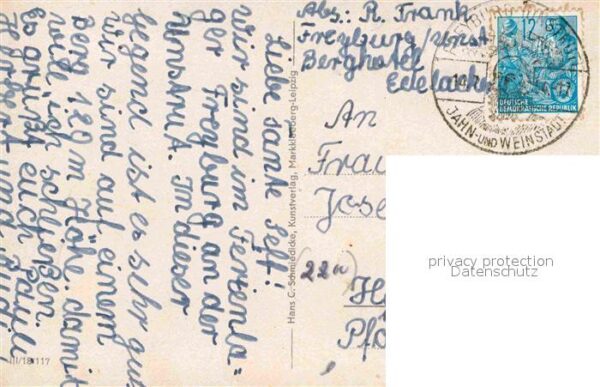 Liebe Tante Seff!
Wir sind im Ferienla=
ger Freyburg an der
Unstrut. In dieser
Gegend ist es sehr gut
wir sind auf einem
Berg 120 m Höhe, damit
will ich schließen.
Es grüßt euch
Herbert und Rudi
III/18/117
Hans C. Schmiedicke, Kunstverlag, Markkleeberg-Leipzig
Abs.: R. Frank
Freyburg/Unst
Berghotel
Edelack
12
DEUTSCHE
DEMOKRATISCHE REPUBLIK
JAHN- UND WEINSTADT
An
Frau
Jose
(22a)
H
Pfa
privacy protection
Datenschutz